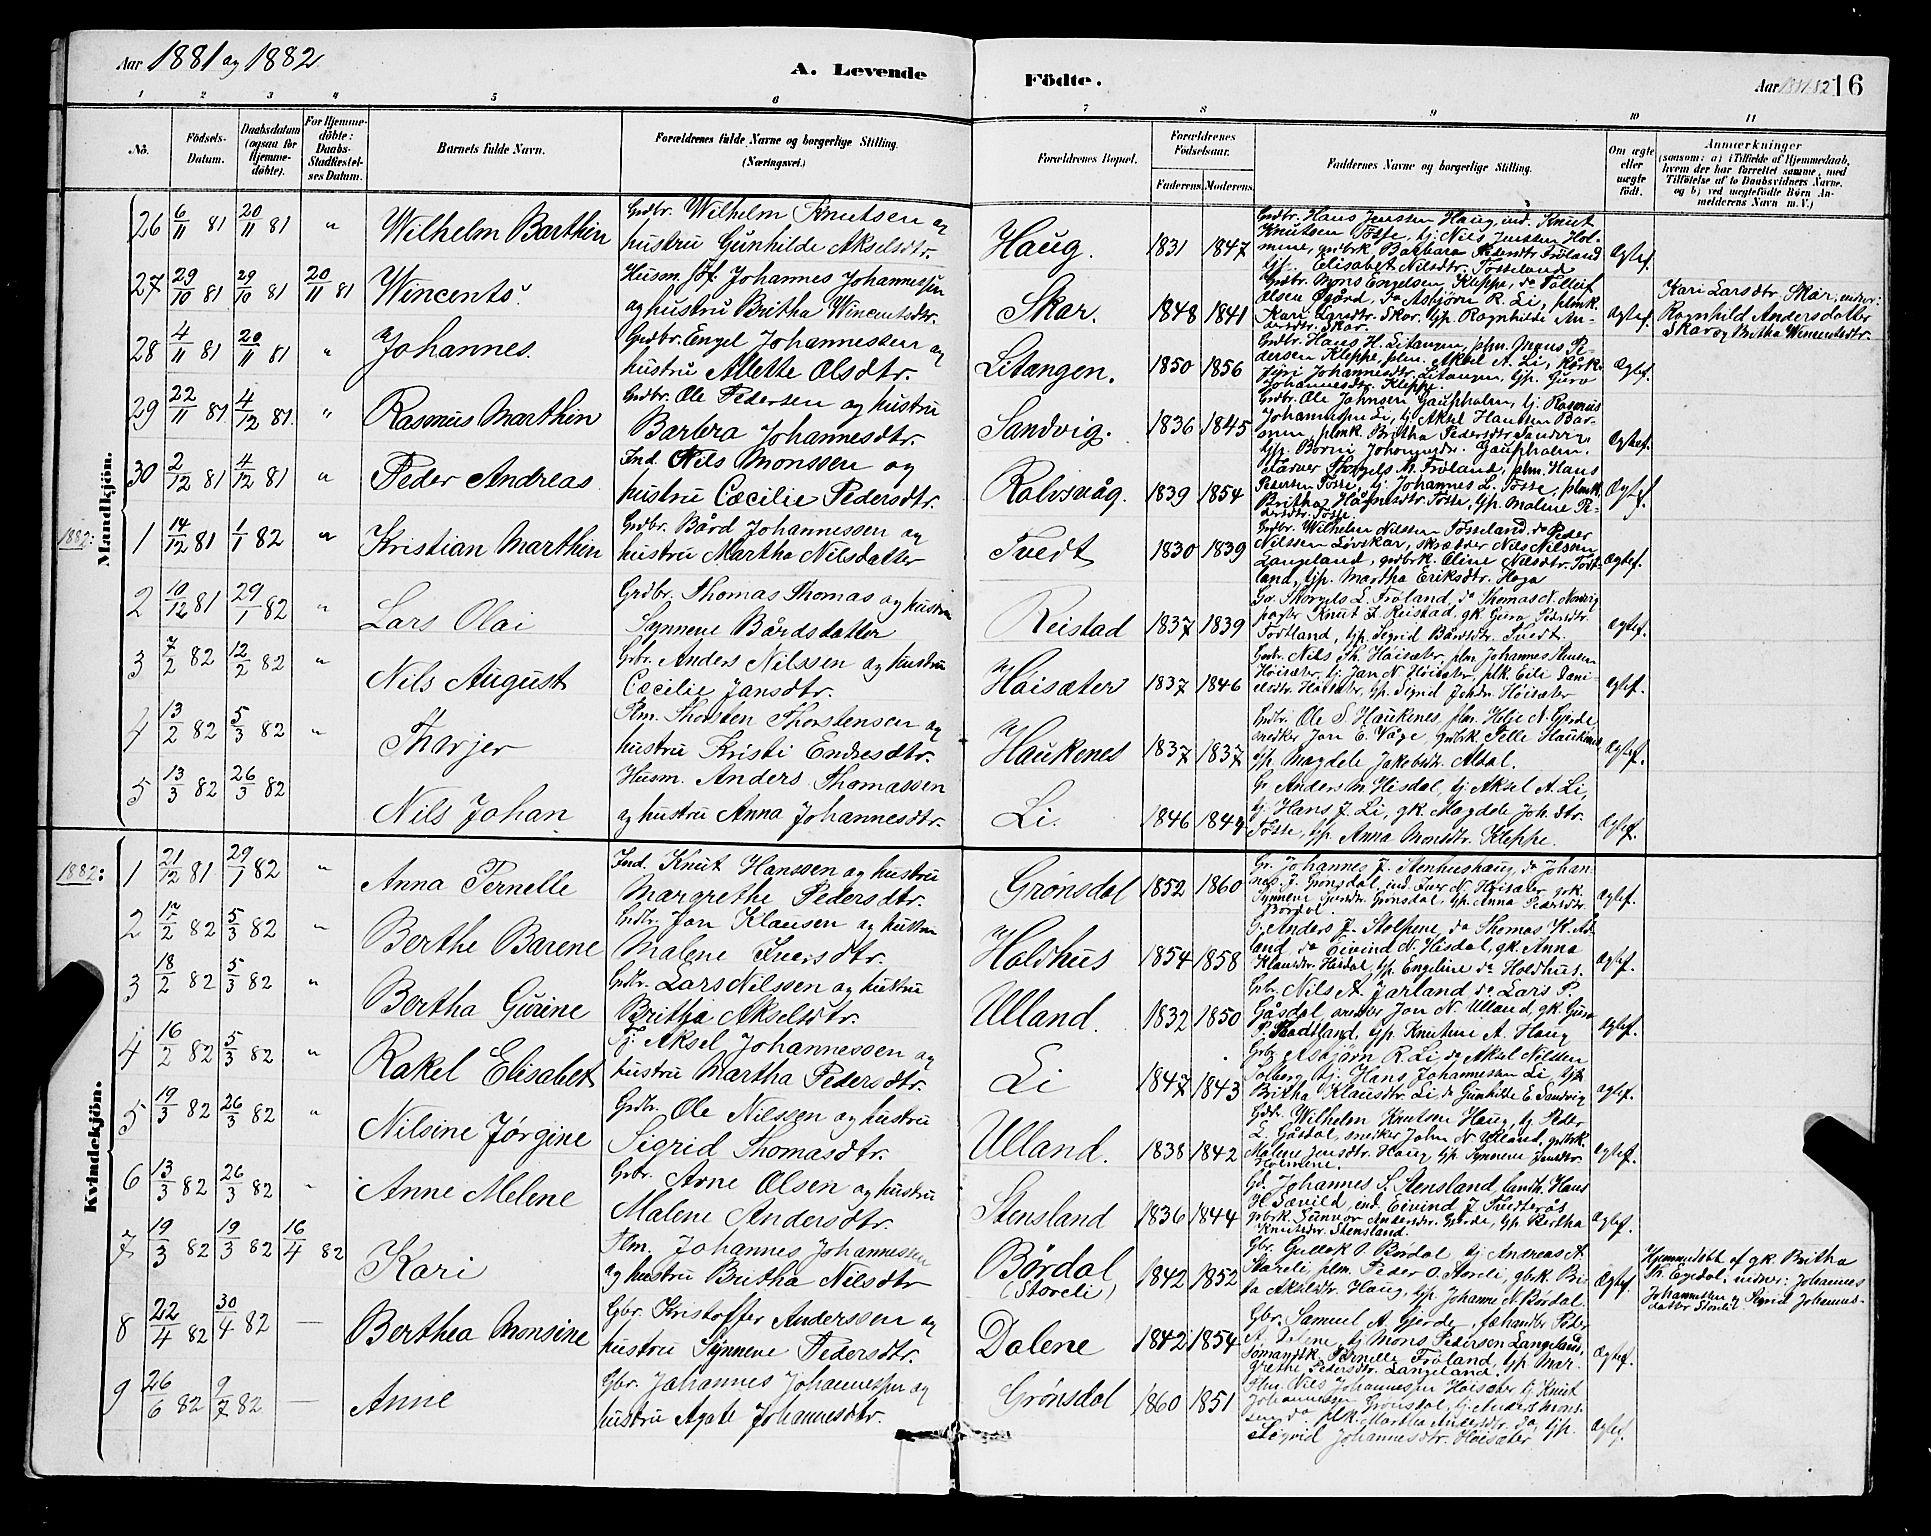 Aar 1881 og 1882
A. Levende
Födte.
Aar 1881-82 16
1 2 3 4 5 6 7 8 9 10 11
No.
Födsels-
Datum.
Daabsdatum
(ogsaa for
Hjemme-
döbte).
For Hjemme-
döbte:
Daabs-
Stadfæstel-
ses Datum.
Barnets fulde Navn.
Forældrenes fulde Navne og borgerlige Stilling.
(Næringsvei.)
Forældrenes Bopæl.
Forældrenes
Födselsaar.
Faderens. Moderens.
Faddernes Navne og borgerlige Stilling.
Om ægte
eller
uægte
födt.
Anmærkninger
(saasom: a) i Tilfælde af Hjemmedaab,
hvem der har forrettet samme, med
Tilföielse af to Daabsvidners Navne,
og b) ved uægtefödte Börn An-
melderens Navn m. V.)
Mandkjön.
26 6/11 81 20/11 81 " Wilhelm Barthin
Grdbr. Wilhelm Knutsen og
hustru Gunhilde Akselsdtr.
Haug. 1831 1847
Grdbr. Hans Jenssen Haug, ind. Knut
Knutsen Tösse, tj. Nils Jenssen Hol-
mene, grdbrk. Barbara Pedersdtr Fröland
tjp. Elisabet Nilsdtr. Tösseland
Ægtef.
27 29/10 81 29/10 81 20/11 81 Wincents.
Husm. Johannes Johannessen
og hustru Britha Wincentsdtr.
Skar. 1848 1841
Grdbr. Mons Engelsen Kleppe, do Tolleif
Olsen Øgård, do Asbjörn R. Li, plmk.
Kari Larsdtr. Skar, tjp. Ragnhilde An-
dersdtr. Skar.
Ægtef.
Kari Larsdtr Skar, vidner:
Ragnhild Andersdatter
Skar og Britha Wincentsdtr.
28 4/11 81 20/11 81 " Johannes.
Grdbr. Engel Johannessen og
hustru Alette Olsdtr.
Litangen. 1850 1856
Grdbr. Hans H. Litangen, plm. Mons Pe-
dersen Kleppe, plm. Aksel A. Li, Kårk.
Johannesdtr. Litangen, tjp. Guro
Johannesdtr. Kleppe.
Ægtef.
29 22/11 81 4/12 81 " Rasmus Marthin
Grdbr. Ole Pedersen og hustru
Barbra Johannesdtr.
Sandvig. 1836 1845
Grdbr. Ole Johnsen Gaupholm, tj. Rasmus
Johannessen Li, tj. Aksel Hansen Bar-
onen, plmk. Britha Pedersdtr Sandven,
tjp. Gaupholm.
Ægtef.
30 2/12 81 4/12 81 " Peder Andreas
Ind. Nils Monssen og
hustru Cæcilie Pedersdtr.
Rolvsvåg. 1839 1854
Farver Thorgels M. Fröland, plm. Hans
Petersen Tösse, tj. Johannes L. Tösse, plmk.
Britha Hågnesdtr. Tösse, tjp. Malene Pe-
dersdtr. Tösse.
Ægtef.
1882: 1 14/12 81 1/1 82 " Kristian Marthin
Grdbr. Bård Johannessen og
hustru Martha Nilsdatter
Tvedt 1830 1839
Grdbr. Wilhelm Nilssen Tösseland, do Peder
Nilssen Lövskar, skrædder Nils Nilssen
Langeland, grdbrk. Eline Nilsdtr. Tödt-
land, tjp. Martha Eriksdtr. Haga
Ægtef.
2 10/12 81 29/1 82 " Lars Olai
Grdbr. Thomas Thomas og hustru
Synneve Bårdsdatter
Reistad 1837 1839
Gbr. Thorgels L. Fröland, do Thomas N. Norvig
Knut J. Reistad, gk. Guro Pedersdtr.
Todtland, tjp. Sigrid Bårdsdtr. Tvedt.
Ægtef.
3 7/2 82 12/2 82 " Nils August
Gbr. Anders Nilssen og hustru
Cæcilie Jansdtr.
Håisæter 1837 1846
Grdbr. Nils Th. Höisæter, plm. Johannes Stensen
Höisæter, tj. Jan N. Höisæter, plk. Cili Dani-
elsdtr. Höisæter, tjp. Sigrid Johdr. Höisæter
Ægtef.
4 13/2 82 5/3 82 " Tharjer
Plm. Thorsten Thorstensen og
hustru Kristi Endresdtr.
Haukenes 1837 1837
Grdbr. Ole S. Haukenes, plm. Helje N. Gjerde,
snedker Jon E. Våge, grdbrk. Pelle Haukenes
tjp. Magdele Jakobsdtr. Aldal.
Ægtef.
5 13/3 82 26/3 82 Nils Johan
Husm. Anders Thomassen
og hustru Anna Johannesdtr.
Li. 1846 1849
Gr. Anders M. Hisdal, tj. Aksel A. Li,
tj. Hans J. Li, gk. Magdele Joh.dtr.
Tösse, tjp. Anna Monsdtr. Kleppe.
Ægtef.
Kvindekjön.
1882: 1 21/12 81 29/1 82 " Anna Pernelle
Ind. Knut Hanssen og hustru
Margrethe Pedersdtr.
Grönsdal 1852 1860
Gr. Johannes J. Stenhushaug, do Johan-
nes J. Grönsdal, ind. Iver N. Höisæter, grk.
Synneve Grönsdal, tjp. Anna Pedersdtr.
Bördal.
Ægtef.
2 12/2 82 5/3 82 " Berthe Barene
Grdbr. Jon Klausen og hustru
Malene Iversdtr.
Holdhus 1854 1858
Gr. Anders J. Stolpene, do Thomas K. Ad-
land, do Eivind N. Hisdal, gk. Anna
Klausdtr. Hisdal, tjp. Engeline do Holdhus.
Ægtef.
3 18/2 82 5/3 82 " Bertha Gurine
Grdbr. Lars Nilssen og hustru
Britha Akselsdtr.
Ulland. 1832 1850
Gbr. Nils A. Jarland, do Lars P.
Gåsdal, snedker Jon N. Ulland, gk. Guro
P. Todtland, tjp. Knutine A. Haug
Ægtef.
4 16/2 82 5/3 82 " Rakel Elisabet
Tj. Aksel Johannessen og
hustru Martha Pedersdtr.
Li 1847 1843
Gbr. Asbjörn R. Li, do Aksel Nilssen
Solberg, tj. Hans Johannessen Li, tjp.
Britha Klausdtr. Li, do Gunhilde E. Sandvig
Ægtef.
5 19/3 82 26/3 82 " Nilsine Jörgine
Grdbr. Ole Nilssen og hustru
Sigrid Thomasdtr.
Ulland. 1838 1842
Gdbr. Wilhelm Knutsen Haug, tj. Peder
L. Gåsdal, snedker John N. Ulland, grdbrk.
Malene Jensdtr. Haug, tjp. Synneve Jensdtr.
Holmene.
Ægtef.
6 13/3 82 26/3 82 " Anne Melene
Grbr. Arne Olsen og hustru
Malene Andersdtr.
Stensland 1836 1844
Gd. Johannes S. Stensland, landh. Hans
H. Sævild, ind. Eivind J. Tvedterås
gbrk. Gunnor Andersdtr. Gjerde, tjp. Bertha
Knutsdtr. Stensland.
Ægtef.
7 19/3 82 19/3 82 16/4 82 Kari
Plm. Johannes Johannessen
og hustru Britha Nilsdtr
Bördal
(Storeli) 1842 1852
Gbr. Gullak O. Bördal, tj. Andreas A.
Storeli, plm. Peder O. Storeli, gbrk. Bri-
ta Akselsdtr. Haug, tjp. Johanne N. Bördal.
Ægtef.
Hjemmedöbt af gk. Britha
Th. Egedal, vidner: Johannes
Johannessen og Sigrid Johannes-
datter Storeli.
8 22/4 82 30/4 82 — Berthea Monsine
Gbr. Kristoffer Anderssen og
hustru Synneve Pedersdtr.
Dalene 1842 1854
Gbr. Samuel A. Gjerde, Peder
A. Dalene, tj. Mons Pedersen Langeland,
Sömandsk. Pernille Fröland, tjp. Mar-
grethe Pedersdtr. Langeland.
Ægtef.
9 26/6 82 9/7 82 — Anne
Gbr. Johannes Johannessen og
hustru Agate Johannesdtr.
Grönsdal 1860 1851
Plm. Nils Johannessen Höisæter, tj. Knut
Johannessen Grönsdal, tj. Anders Mons-
sen do, plk. Martha Andersdtr. do, tjp.
Sigrid Johannesdtr. Höisæter
Ægtef.